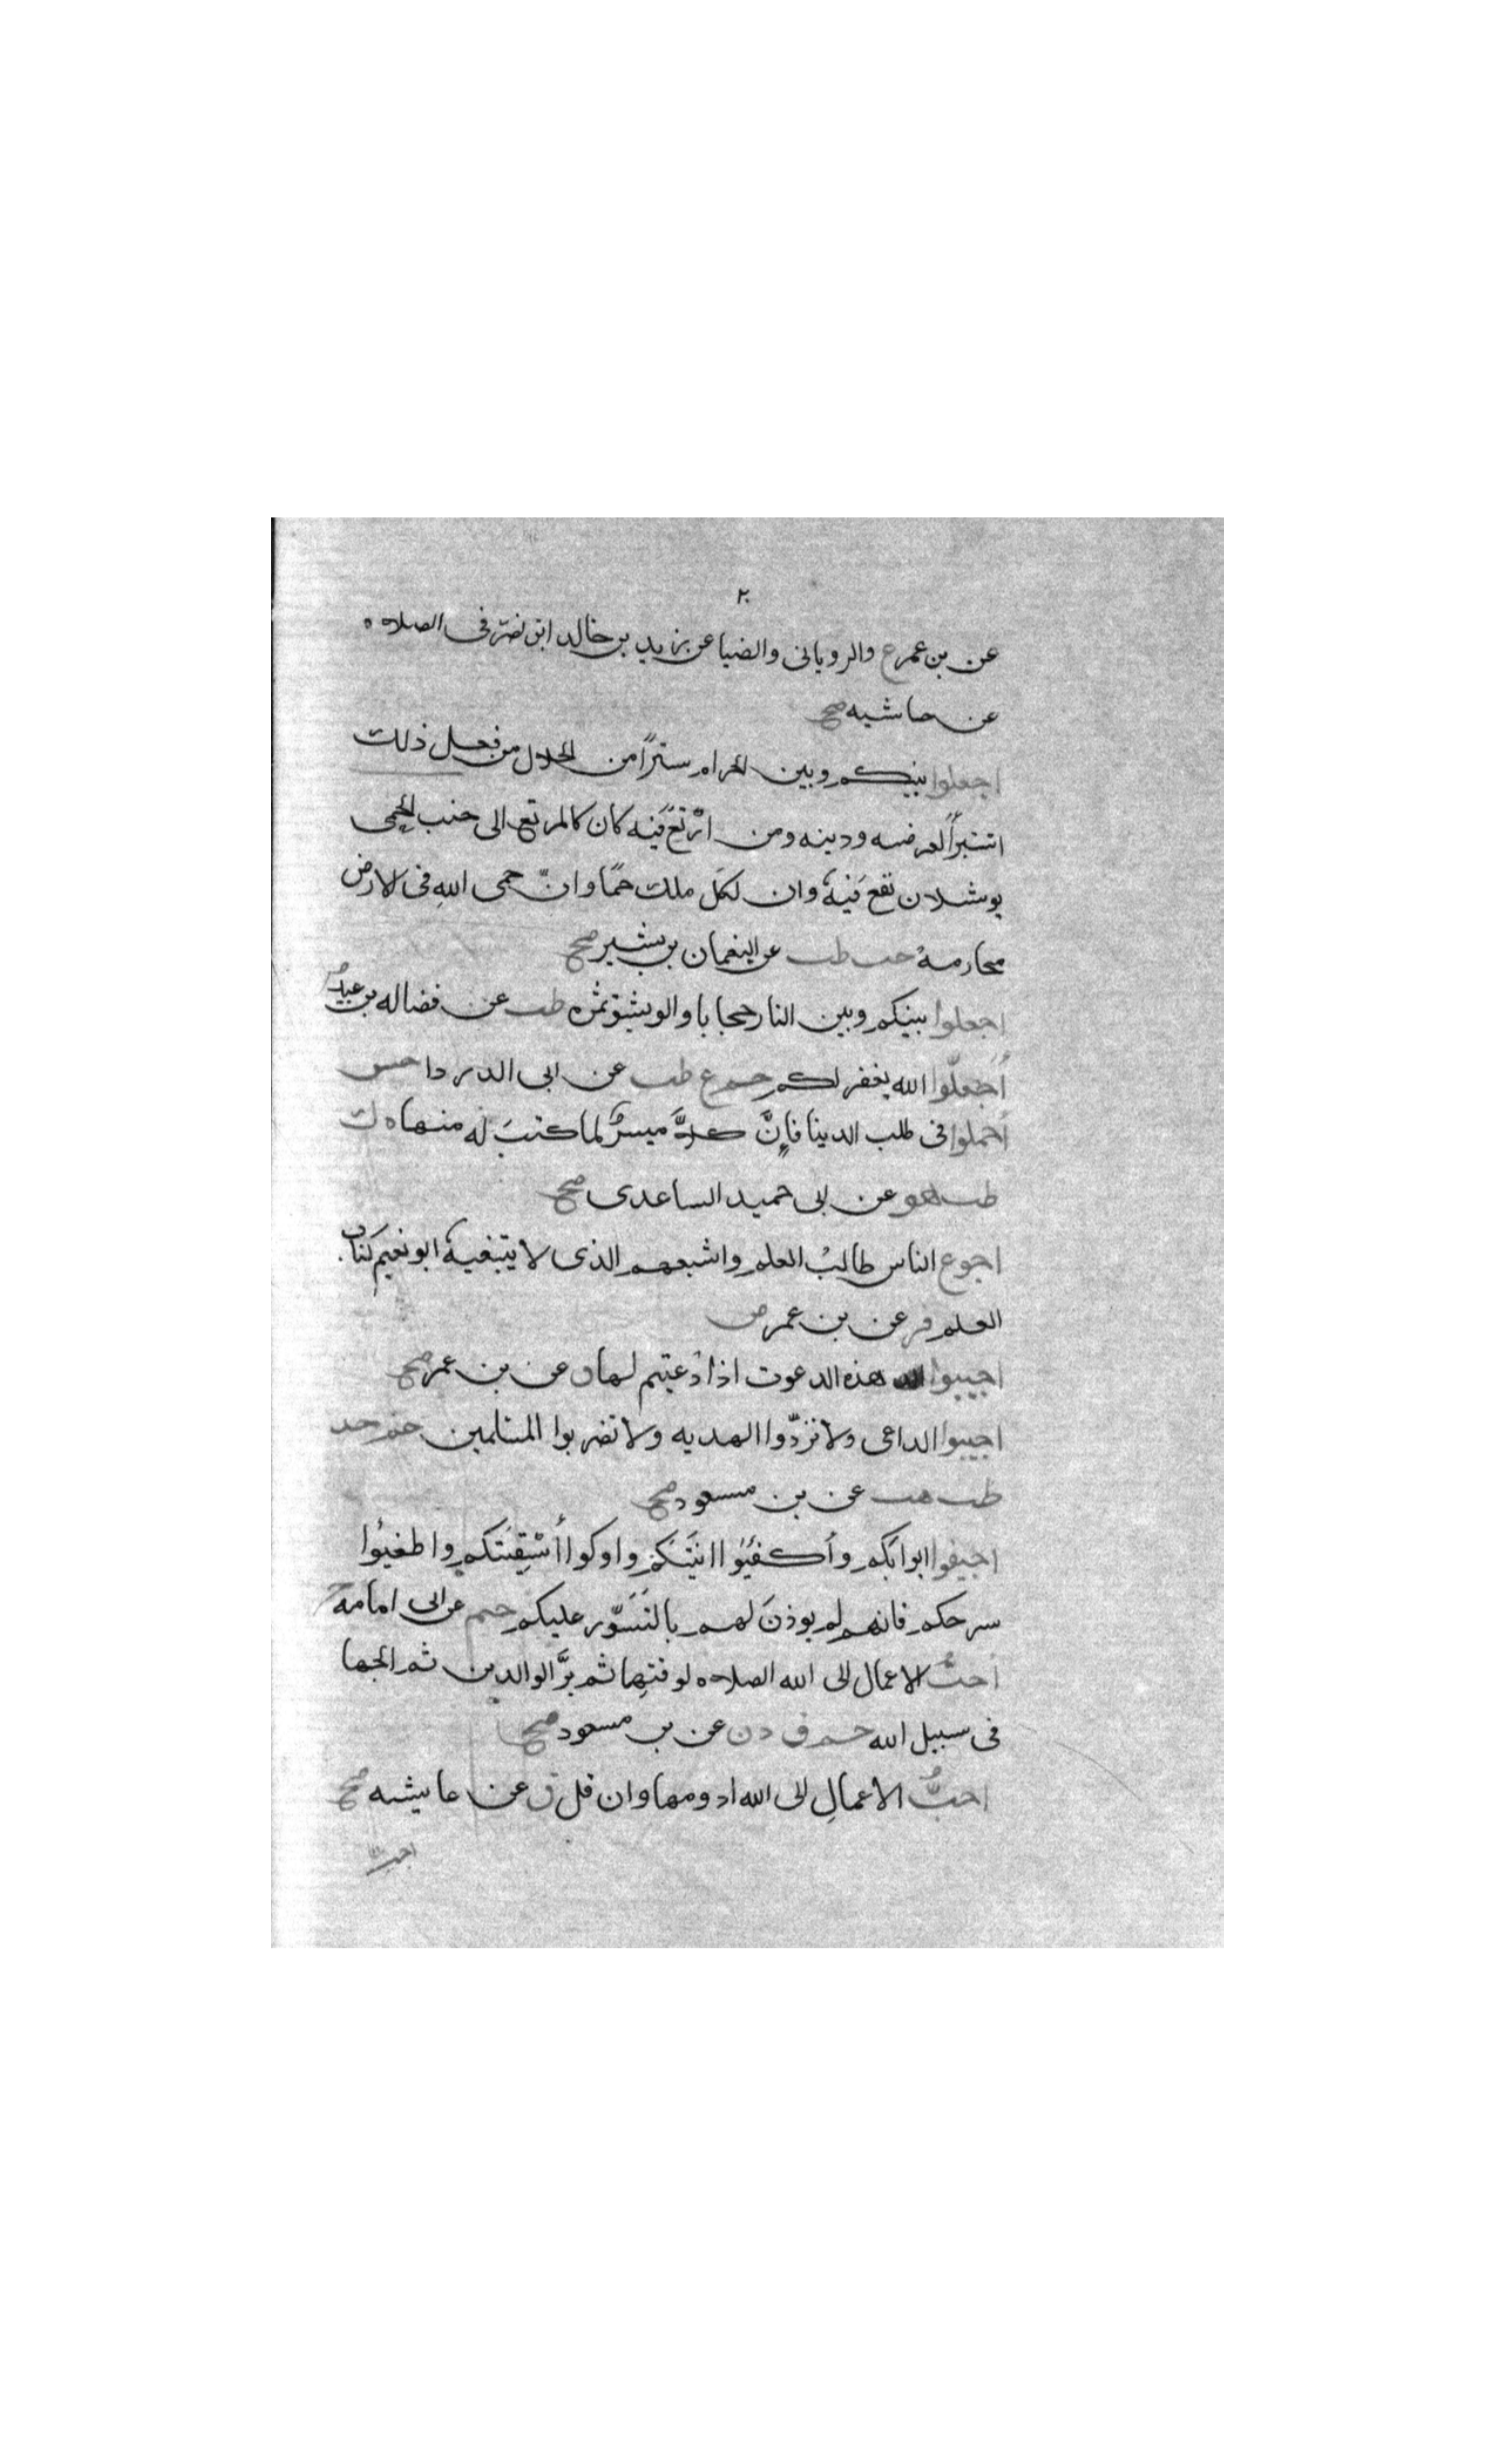 ٢٠
عن بن عمر ع والرويانى والضيا عن زيد بن خالد ابن نصر فى الصلاه
عن عاشيه صح
اجعلوا بينكم وبين الحرام سترًا من الحلال من فعل ذلك
استبرأ لعرضه ودينه ومن ارتع فيه كان كالمرتع الى جنب الحمى
يوشك ان تقع فيه وان لكل ملك حمًا وانّ حمى الله فى الارض
محارمه حب طب عن النعمان بن بشير صح
اجعلوا بينكم وبين النار حجابا ولو بشق تمره طب عن فضاله بن عبيد
أجعلّوا الله يغفر لكم حم ع طب عن ابى الدردا حس
أجملوا فى طلب الدينا فإنَّ كلاًّ ميسرٌ لما كتب له منها ه ك
طب هق عن ابى حميد الساعدى صح
اجوع الناس طالبُ العلم واشبعهم الذى لا يتبغيه ابو نعيم كتاب
العلم فر عن بن عمر ض
اجيبوا هذه الدعوت اذا دُعيتم لها ق عن بن عمر صح
اجيبوا الداعى ولا تردّوا الهديه ولا تضربوا المسلمين حم خد
طب هب عن بن مسعود صح
اجيفوا ابوابكم وأكفيُوا انيَتَكم واوكوا أسْقِيَتكم واطفيُوا
سرجكم فانهم لم يوذنَ لهم بالتَسَوّر عليكم حم عن ابى امامه
أحبُّ الاعمال الى الله الصلاه لوقتِها ثم برَّ الوالدين ثم الجها
فى سبيل الله حم ق د ن عن بن مسعود صح
احبُّ الاعمالِ الى الله ادومها وان قل ق عن عايشه صح
احب